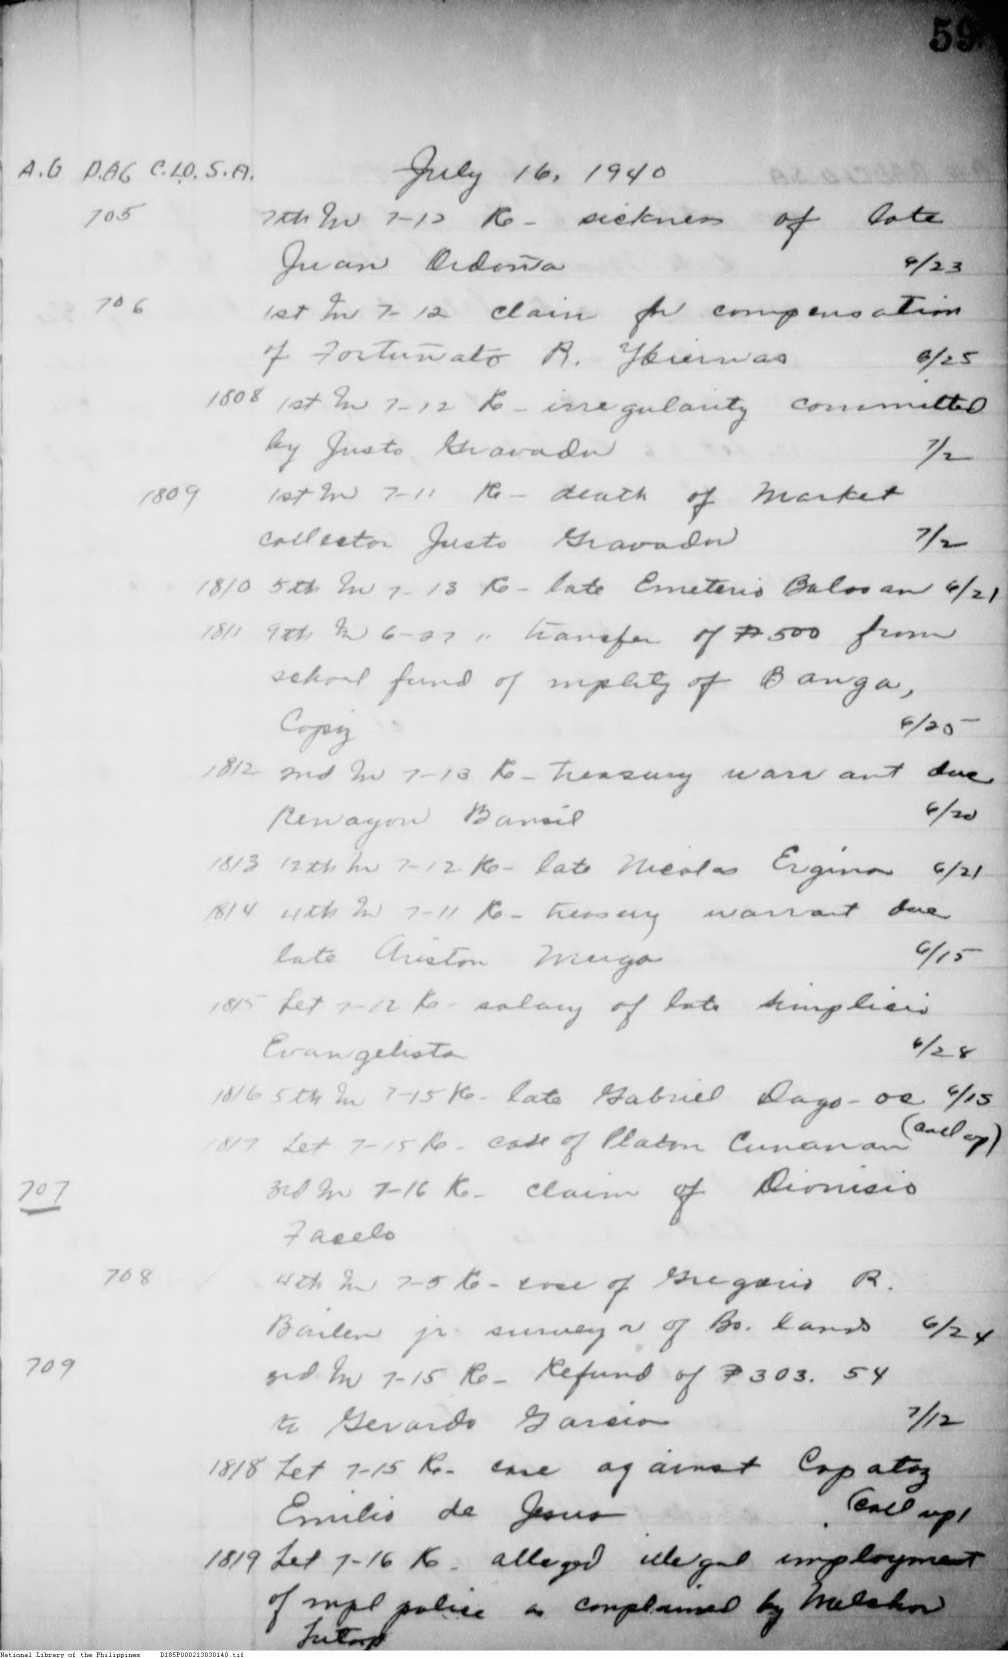 59
A.G D.AG C.I.O. S.A. July 16, 1940
705 7th In 7-12 Re- sickness of late
Juan Ordoña 6/23
706 1st In 7-12 claim for compensation
of Fortunato R. Ybiernas 6/25
1808 1st In 7-12 Re- irregularity committed
by Justo Gravador 7/2
1809 1st In 7-11 Re- death of Market
collector Justo Gravador 7/2
1810 5th In 7-13 Re- late Emeterio 6/21
1811 9th In 6-27 " transfer of ₱500 from
school fund of mplity of Banga,
Capiz 6/25
1812 2nd In 7-13 Re- treasury warrant due
6/20
1813 12th In 7-12 Re- late Nicolas 6/21
1814 4th In 7-11 Re- treasury warrant due
late Ariston 6/15
1815 Let 7-12 Re- salary of late Simplicio
Evangelista 6/28
1816 5th In 7-15 Re- late Gabriel Dago-oc 6/15
1817 Let 7-15 Re- case of Platon Cunanan (call up)
707 3rd In 7-16 Re- claim of Dionisio
Facelo
708 4th In 7-5 Re- case of Gregorio R.
Bailen jr. surveyor of Bu. lands 6/24
709 2nd In 7-15 Re- Refund of ₱303.54
to Gerardo Garcia 7/12
1818 Let 7-15 Re- case against Capataz
Emilio de Jesus (call up)
1819 Let 7-16 Re- alleged illegal employment
of mpl police as complained by Melchor
National Library of the Philippines D185P000213030140.tif